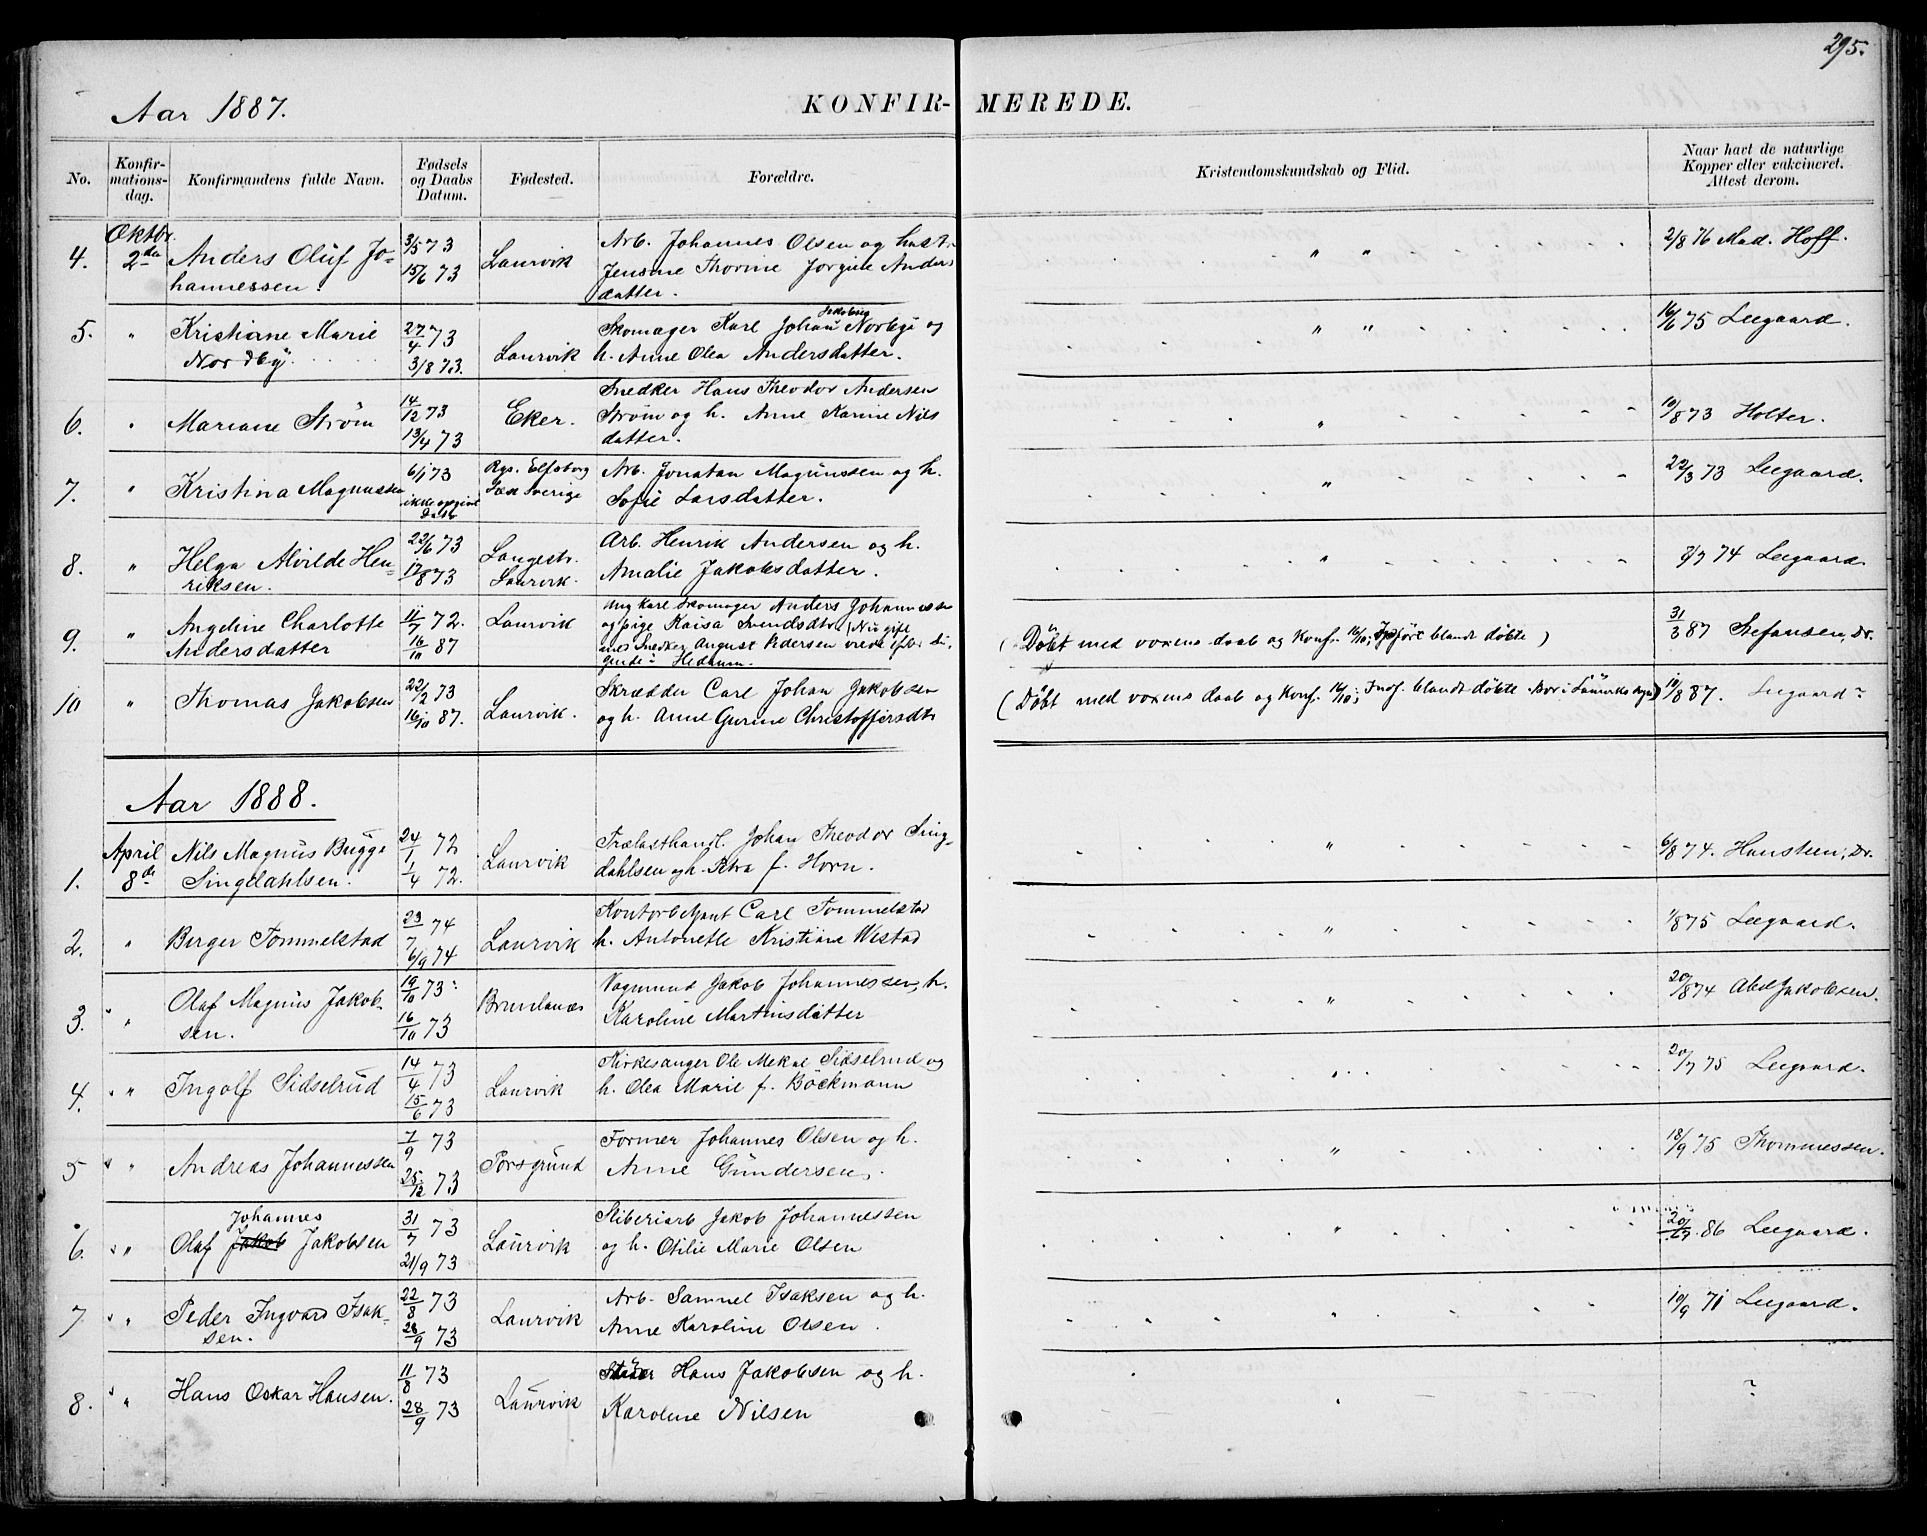 295.
Aar 1887.
KONFIR-MEREDE.
No.
Konfir-
mations-
dag.
Konfirmandens fulde Navn.
Fødsels
og Daabs
Datum.
Fødested.
Forældre.
Kristendomskundskab og Flid.
Naar havt de naturlige
Kopper eller vakcineret.
Attest derom.
4. Oktbr. 2den Anders Oluf Jo-
hannessen. 3/5 73 15/6 73 Laurvik
Arb. Johannes Olsen og hustr.
Jensine Thorine Jørgine Anders
datter.
" " 2/8 76 Mad. Hoff.
5. " Kristiane Marie
Nordby. 27/4 73 3/8 73. Laurvik
Skomager Karl Johan Jakobsen Norbye og
h. Anne Olea Andersdatter.
" " 16/6 75 Leegaard.
6. " Mariane Strøm 14/12 73 13/4 73 Eker.
Snedker Hans Theodor Andersen
Strøm og h. Anne Karine Nils
datter.
" 10/8 73 Holter.
7. " Kristina Magnussen 6/1 73 ikke opgivet Daab
Rgs. Elfsborg
Læn Sverige
Arb. Jonatan Magnussen og h.
Sofie Larsdatter.
" 22/3 73 Leegaard.
8. " Helga Alvilde Hen-
riksen. 22/6 73 17/8 73 Langestr.
Laurvik.
Arb. Henrik Andersen og h.
Amalie Jakobsdatter.
" 8/7 74 Leegaard.
9. " Angeline Charlotte
Andersdatter 11/7 72. 16/10 87 Laurvik
Ung Karl Skomager Anders Johannessen
og pige Kaisa Svendsdtr. (Nu gift
med Snedker August Pedersen
i Hedrum.
(Døbt med voxens daab og Konf. 16/10; Indført blandt døbte)
31/3 87 Stefansen, Dr.
10 " Thomas Jakobsen 22/2 73 16/10 87. Laurvik.
Skrædder Carl Johan Jakobsen
og h. Anne Gurine Christoffersdtr
(Døbt med voxens daab og Konf. 16/10; Indf. blandt døbte. Bor i Laurviks
10/8 87. Leegaard
Aar 1888.
1. April 8de Nils Magnus Bugge
Singdahlsen. 24/1 72 1/4 72. Laurvik
Trælasthandl. Johan Theodor Sing-
dahlsen og h. Petra f. Horn.
" 6/8 74. Hansteen, Dr.
2. " Birger Tommelstad 23/7 74 6/9 74 Laurvik
Kontorbetjent Carl Tommelstad
h. Antonette Kristiane Westad
" 1/8 75 Leegaard.
3. " Olaf Magnus Jakob-
sen. 19/10 73 16/10 73 Brunlanæs
Vognmand Jakob Johannessen, h.
Karoline Martinsdatter
" 20/8 74 Abel Jakobsen.
4. " Ingolf Sidselrud 14/4 73 15/6 73 Laurvik
Kirkesanger Ole Mekal Sidselrud og
h. Olea Marie f. Böckmann
" 20/7 75 Leegaard.
5 " Andreas Johannessen 7/9 73 25/12 73 Porsgrund
Former Johannes Olsen og h.
Anne Gundersen.
" 18/9 75 Thommessen.
6. " Johannes
Olaf Jakob Jakobsen 31/7 73 21/9 73 Laurvik
Stiberiarb Jakob Johannessen
og h. Otilie Marie Olsen
" 86 Leegaard.
7. " Peder Ingvard Isak-
sen. 22/8 73 28/9 73 Laurvik
Arb. Samuel Isaksen og h.
Anne Karoline Olsen.
" 10/9 71 Leegaard.
8. " Hans Oskar Hansen. 11/8 73 28/9 73 Laurvik
Hans Jakobsen og h.
Karoline Nilsen
?